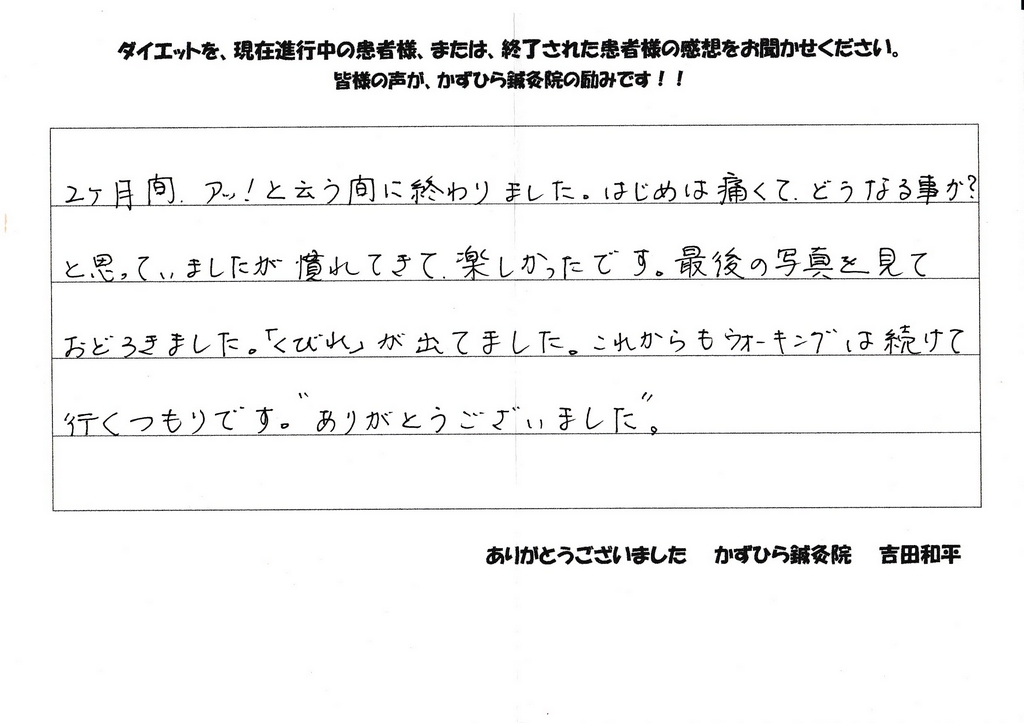 ダイエットを、現在進行中の患者様、または、終了された患者様の感想をお聞かせください。
皆様の声が、かずひら鍼灸院の励みです！！
2ヶ月間、アッ!と云う間に終わりました。はじめは痛くて、どうなる事か?
と思っていましたが慣れてきて、楽しかったです。最後の写真を見て
おどろきました。「くびれ」が出てました。これからもウォーキングは続けて
行くつもりです。"ありがとうございました"。
ありがとうございました　かずひら鍼灸院　吉田和平